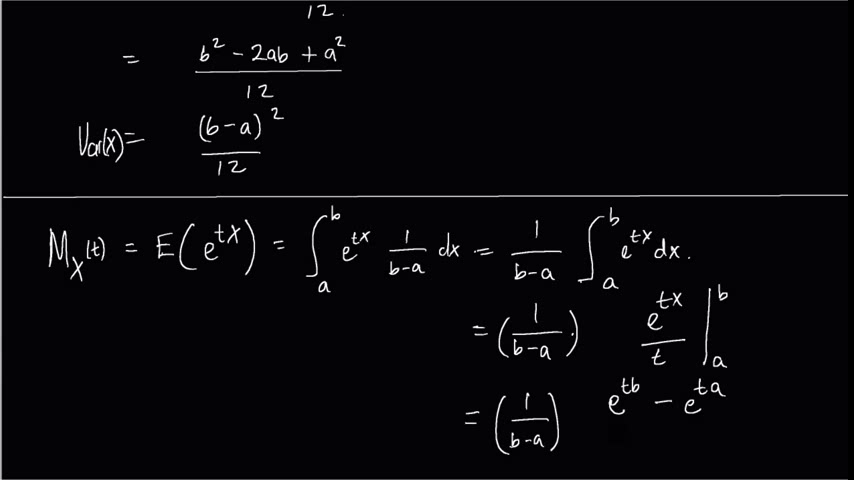 12.
= b² - 2ab + a² / 12
Var(X) = (b-a)² / 12
M_X(t) = E(e^{tX}) = ∫_a^b e^{tx} 1/(b-a) dx = 1/(b-a) ∫_a^b e^{tx} dx.
= (1/(b-a) ·) e^{tx}/t |_a^b
= (1/(b-a)) e^{tb} - e^{ta}